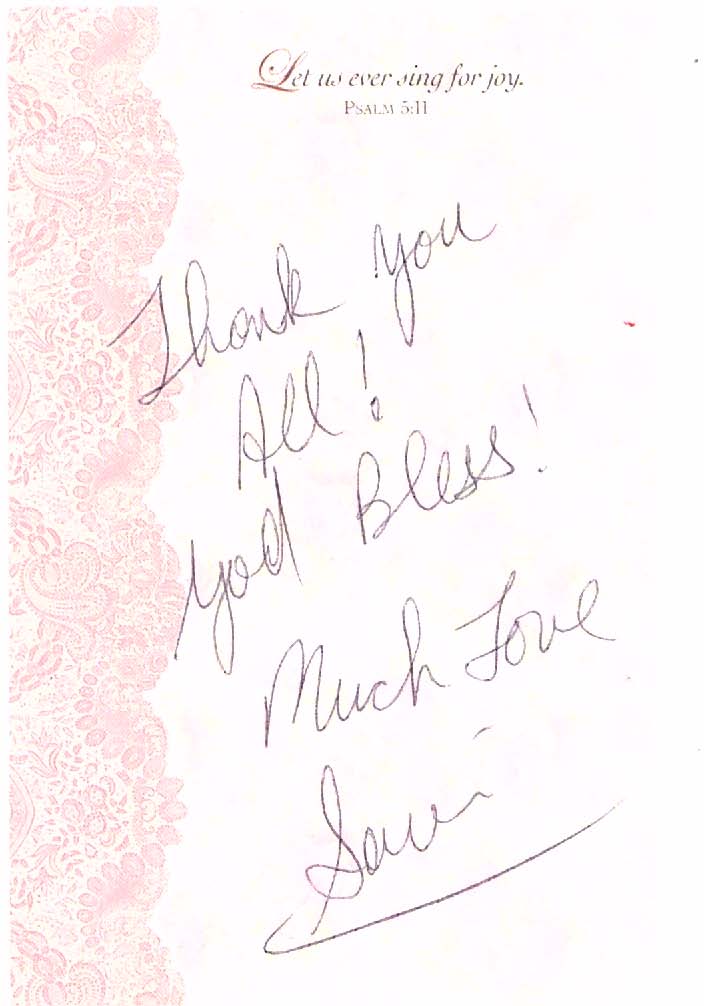 Let us ever sing for joy.
PSALM 5:11
Thank you
All!
God Bless!
Much Love